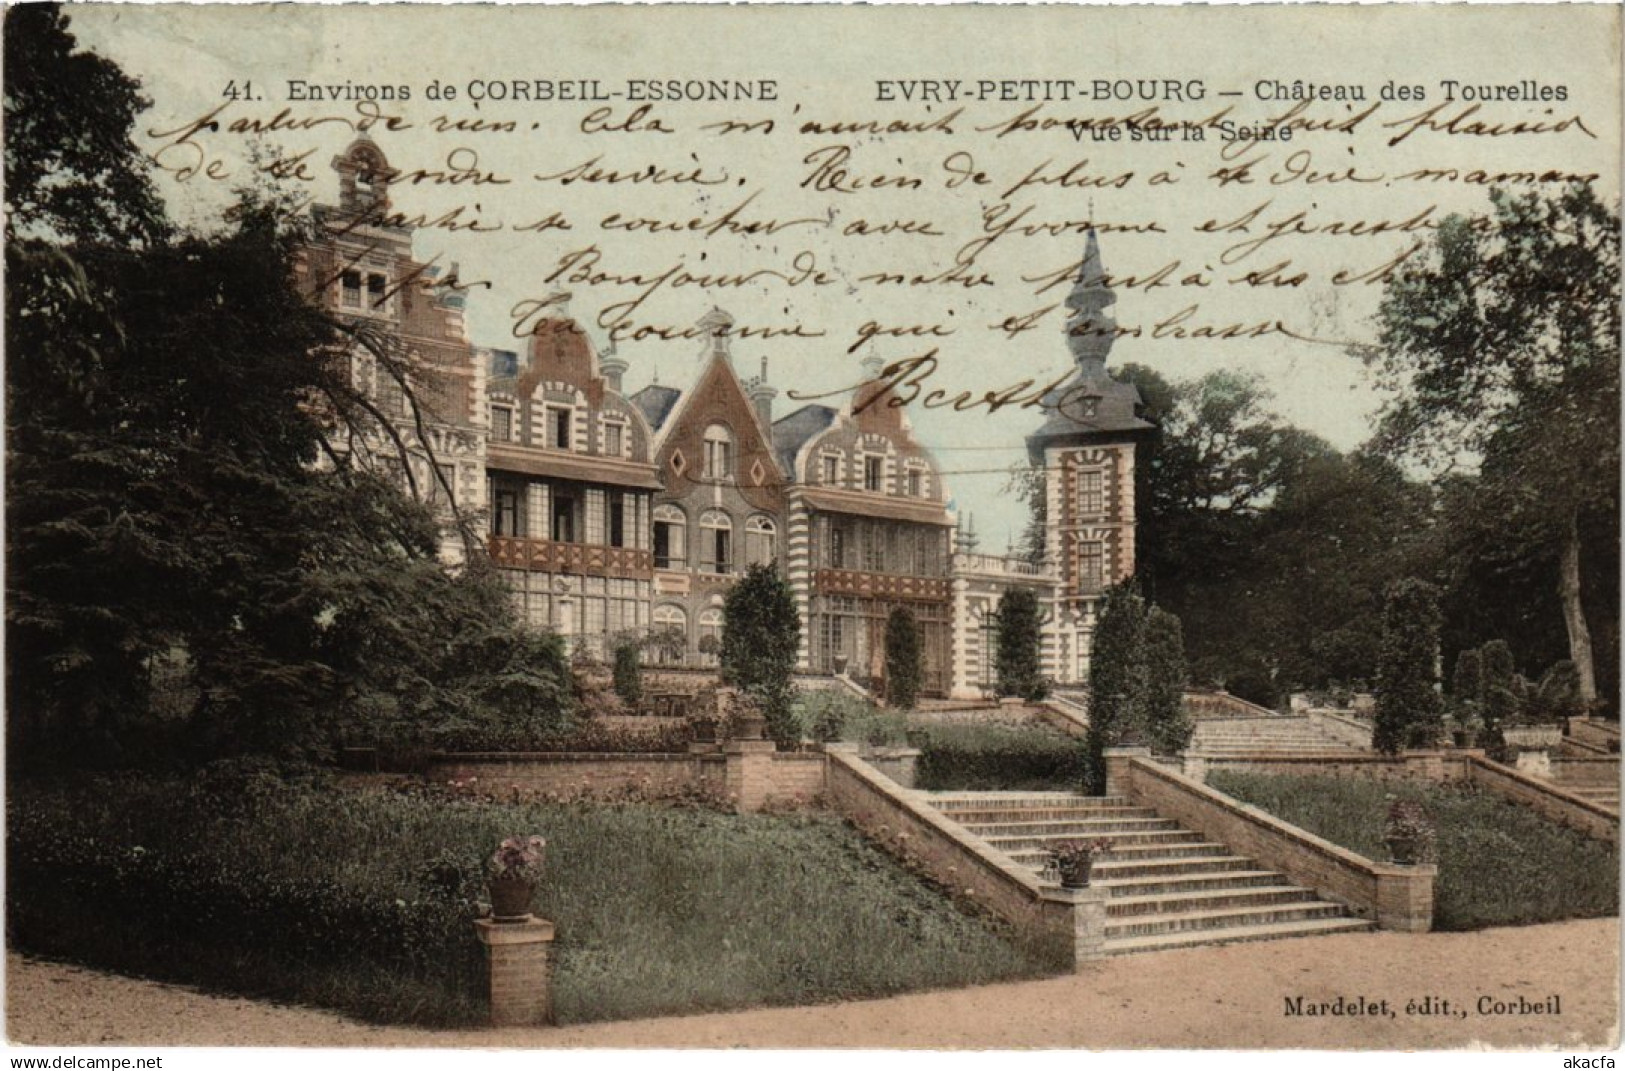 41. Environs de CORBEIL-ESSONNE EVRY-PETIT-BOURG — Château des Tourelles
Vue sur la Seine
parler de rien. Cela m'aurait pourtant fait plaisir
de te rendre service. Rien de plus à te dire. maman
est partie se coucher avec Yvonne et je reste avec
papa. Bonjour de notre part à tes
Ta cousine qui t'embrasse
Berthe
Mardelet, édit., Corbeil
akacfa